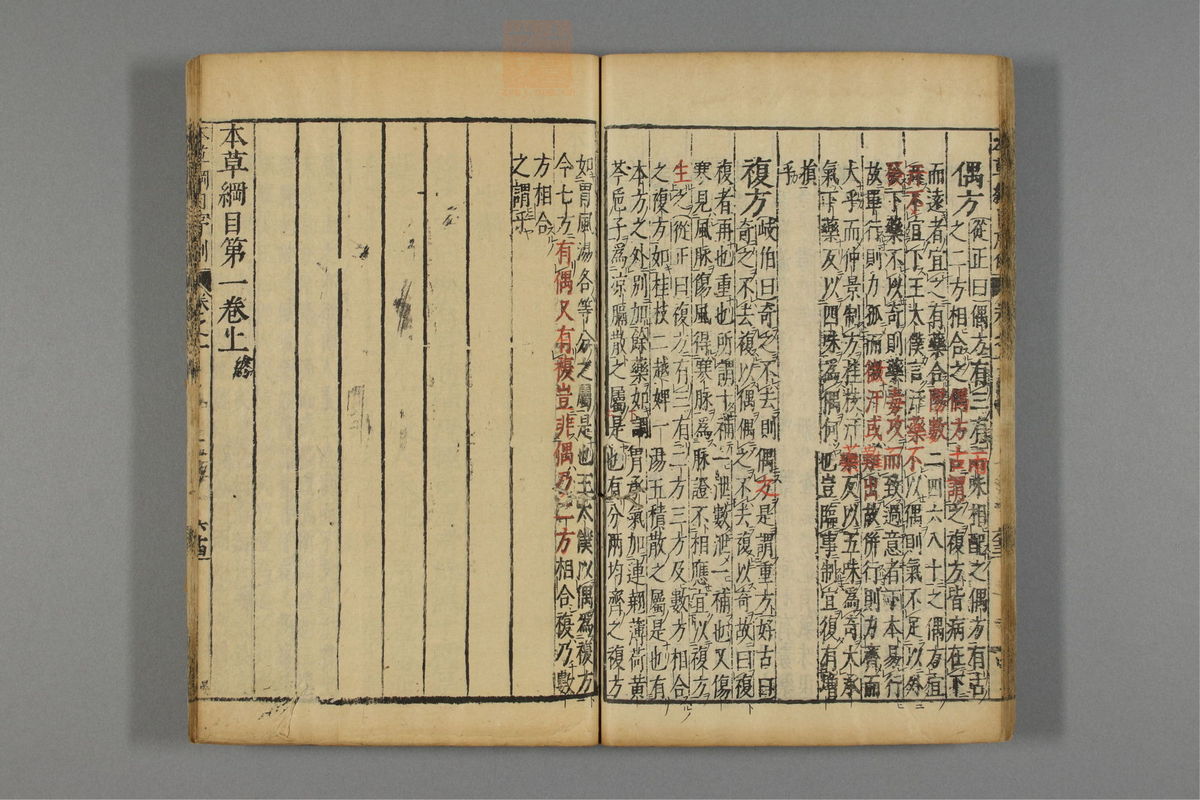 偶方從正曰偶方有三有兩味相配之偶方有古
之二方相合之偶方古謂之複方皆病在下
而遠者宜之有藥合陽數二四六八十之偶方宜
下王太僕言汗藥不以偶則氣不足以外
發下藥不以奇則藥毒攻而致過意者下本易行
故單行則力孤而微汗或難出故併行則力齊而
大乎而仲景制方桂枝汗藥反以五味為奇大承
氣下藥反以四味為偶何也豈臨事制宜復有增
損乎
複方岐伯曰奇之不去則偶之是謂重方好古曰
奇之不去複以偶偶之不去複以奇故曰複
複者再也重也所謂十補一泄數泄一補也又傷
寒見風脉傷風得寒脉為脉證不相應宜以複方
主之從正曰複方有三有二方三方及數方相合
之複方如桂枝二越婢一湯五積散之屬是也有
本方之外別加餘藥如調胃承氣加連翹薄荷黃
芩梔子為凉膈散之屬是也有分兩均齊之複方
如胃風湯各等分之屬是也王太僕以偶為複方
今七方有偶又有複豈非偶乃二方相合複乃數
方相合
之謂乎
本草綱目第一卷上終